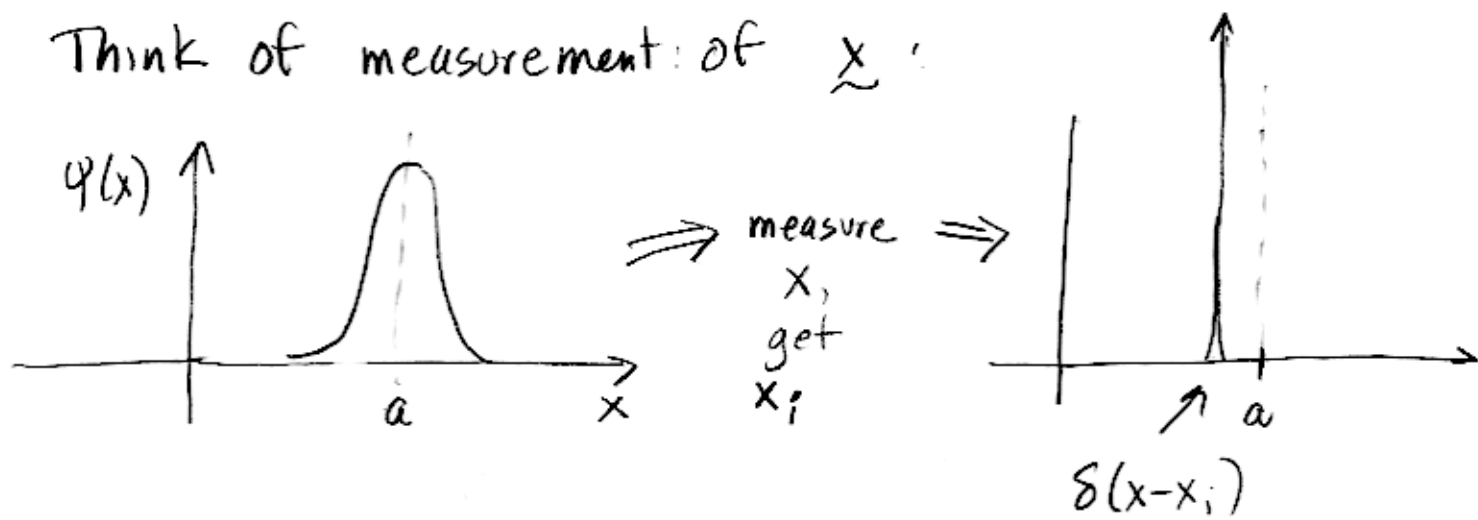 Think of measurement of x:
ψ(x)
a
x
measure
x,
get
xᵢ
a
δ(x-xᵢ)